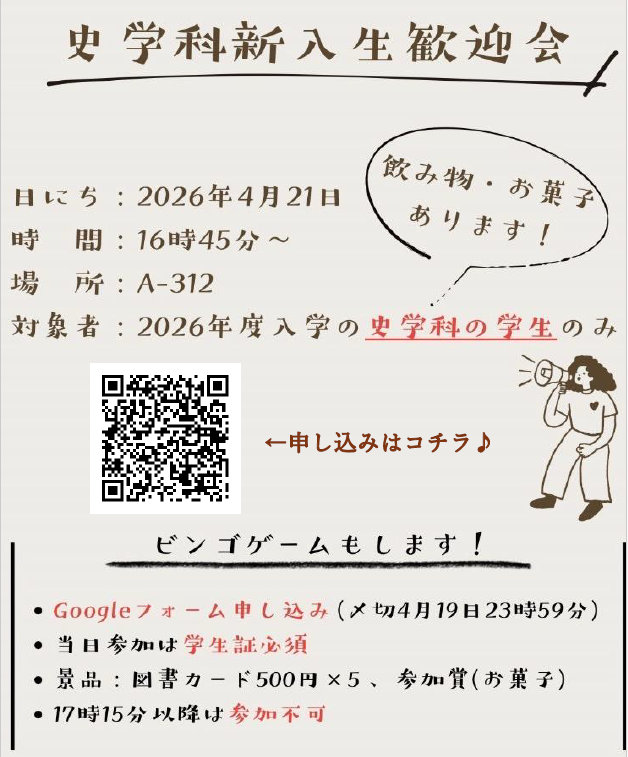 史学科新入生歓迎会
飲み物・お菓子
あります！
日にち：2026年4月21日
時　間：16時45分～
場　所：A-312
対象者：2026年度入学の史学科の学生のみ
←申し込みはコチラ♪
ビンゴゲームもします！
• Googleフォーム申し込み(〆切4月19日23時59分)
• 当日参加は学生証必須
• 景品：図書カード500円×5、参加賞(お菓子)
• 17時15分以降は参加不可